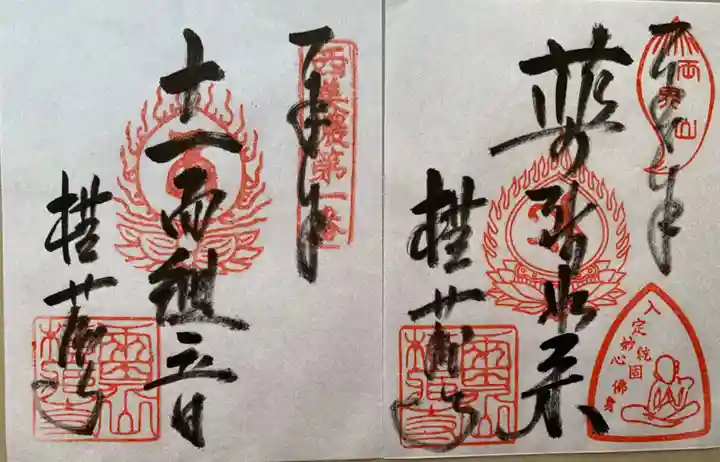 奉拝
両界山
薬師如来
横蔵寺
入定
妙心
乾固
佛身
奉拝
西美濃第一番
十一面観音
横蔵寺